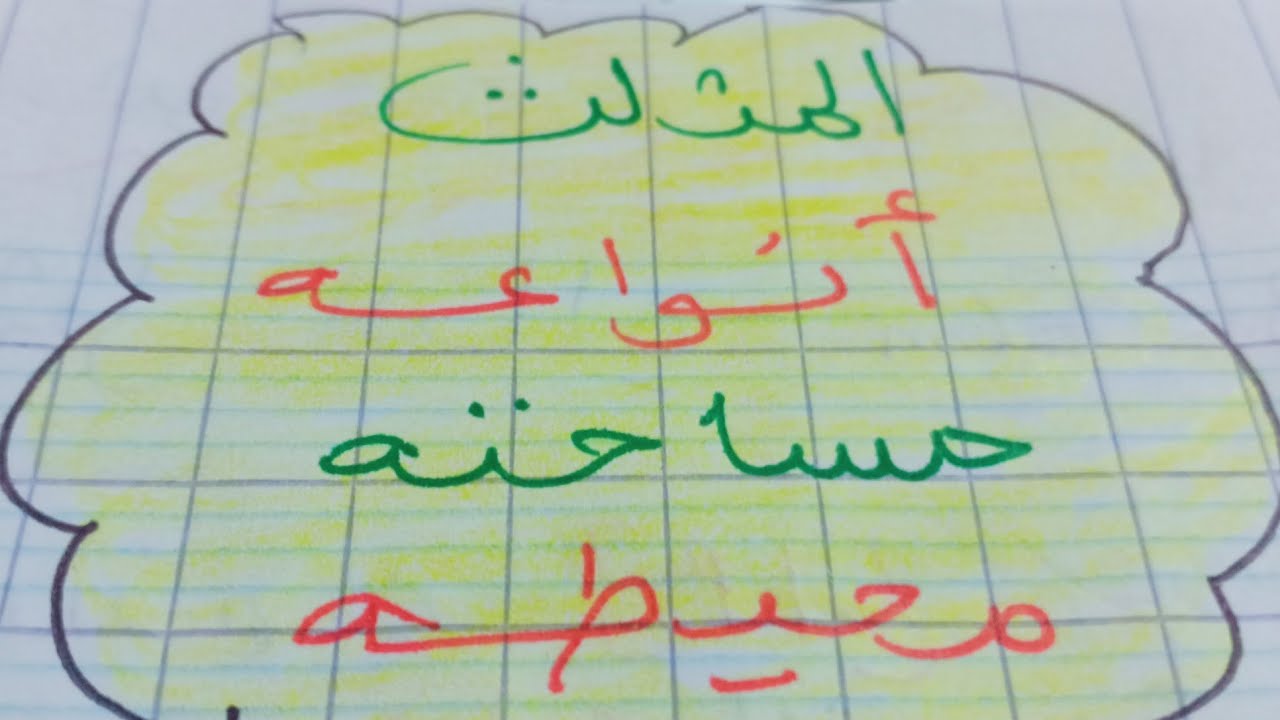 المثلث
أنواعه
مساحته
محيطه